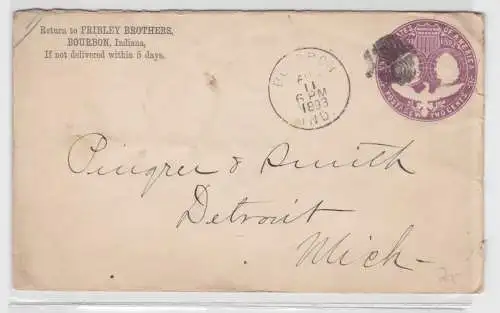 Return to FRIBLEY BROTHERS,
BOURBON, Indiana,
If not delivered within 5 days.
BOURBON
11
6 PM
1893
IND.
UNITED STATES OF AMERICA
POSTAGE TWO CENTS
Pingree & Smith
Detroit
Mich-